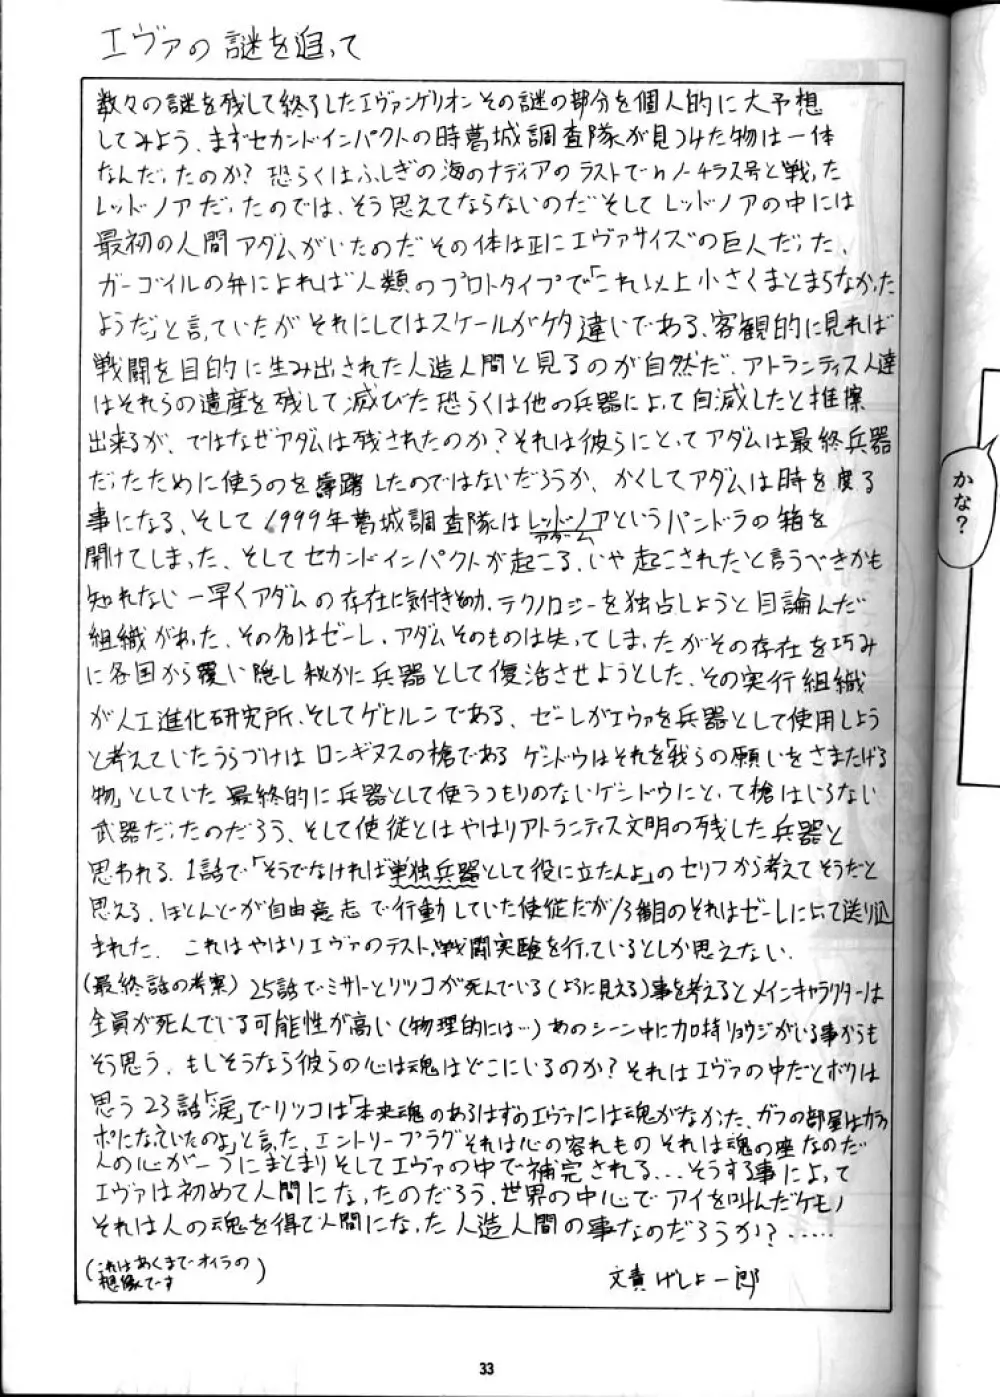 エヴァの謎を追って
数々の謎を残して終了したエヴァンゲリオンその謎の部分を個人的に大予想
してみよう、まずセカンドインパクトの時葛城調査隊が見つけた物は一体
なんだったのか？恐らくはふしぎの海のナディアのラストでNノーチラス号と戦った
レッドノアだったのでは、そう思えてならないのだそしてレッドノアの中には
最初の人間アダムがいたのだその体は正にエヴァサイズの巨人だった、
ガーゴイルの弁によれば人類のプロトタイプで「これ以上小さくまとまらなかった
ようだ」と言っていたがそれにしてはスケールがケタ違いである、客観的に見れば
戦闘を目的に生み出された人造人間と見るのが自然だ、アトランティス人達
はそれらの遺産を残して滅びた恐らくは他の兵器によって自滅したと推擦
出来るが、ではなぜアダムは残されたのか？それは彼らにとってアダムは最終兵器
だったために使うのを躊躇したのではないだろうか、かくしてアダムは時を度る
事になる、そして1999年葛城調査隊はレッドノアというパンドラの箱を
アダム
開けてしまった、そしてセカンドインパクトが起こる、いや起こされたと言うべきかも
知れない一早くアダムの存在に気付き テクノロジーを独占しようと目論んだ
組織があった、その名はゼーレ、アダムそのものは失ってしまったがその存在を巧み
に各国から覆い隠し秘かに兵器として復活させようとした、その実行組織
が人工進化研究所、そしてゲヒルンである、ゼーレがエヴァを兵器として使用しよう
と考えていたうらづけはロンギヌスの槍である ゲンドウはそれを「我らの願いをさまたげる
物」としていた 最終的に兵器として使うつもりのないゲンドウにとって槍はいらない
武器だったのだろう、そして使徒とはやはりアトランティス文明の残した兵器と
思われる、1話で「そうでなければ単独兵器として役に立たんよ」のセリフから考えてそうだと
思える、ほとんどが自由意志で行動していた使徒だが13番目のそれはゼーレによって送り込
まれた、 これはやはりエヴァのテスト、戦闘実験を行っているとしか思えない、
(最終話の考案) 25話でミサトとリツコが死んでいる(ように見える)事を考えるとメインキャラクターは
全員が死んでいる可能性が高い(物理的には…)あのシーン中に加持リョウジがいる事からも
そう思う、もしそうなら彼らの心は魂はどこにいるのか？それはエヴァの中だとボクは
思う23話「涙」でリツコは「本来魂のあるはずのエヴァには魂がなかった、ガフの部屋はカラッ
ポになっていたのよ」と言った、エントリープラグそれは心の容れもの それは魂の座なのだ
人の心が一つにまとまりそしてエヴァの中で補完される...そうする事によって
エヴァは初めて人間になったのだろう、世界の中心でアイを叫んだケモノ
それは人の魂を得て人間になった人造人間の事なのだろうか？.....
(これはあくまでオイラの
想像です)
文責 げしょ一郎
33
かな？